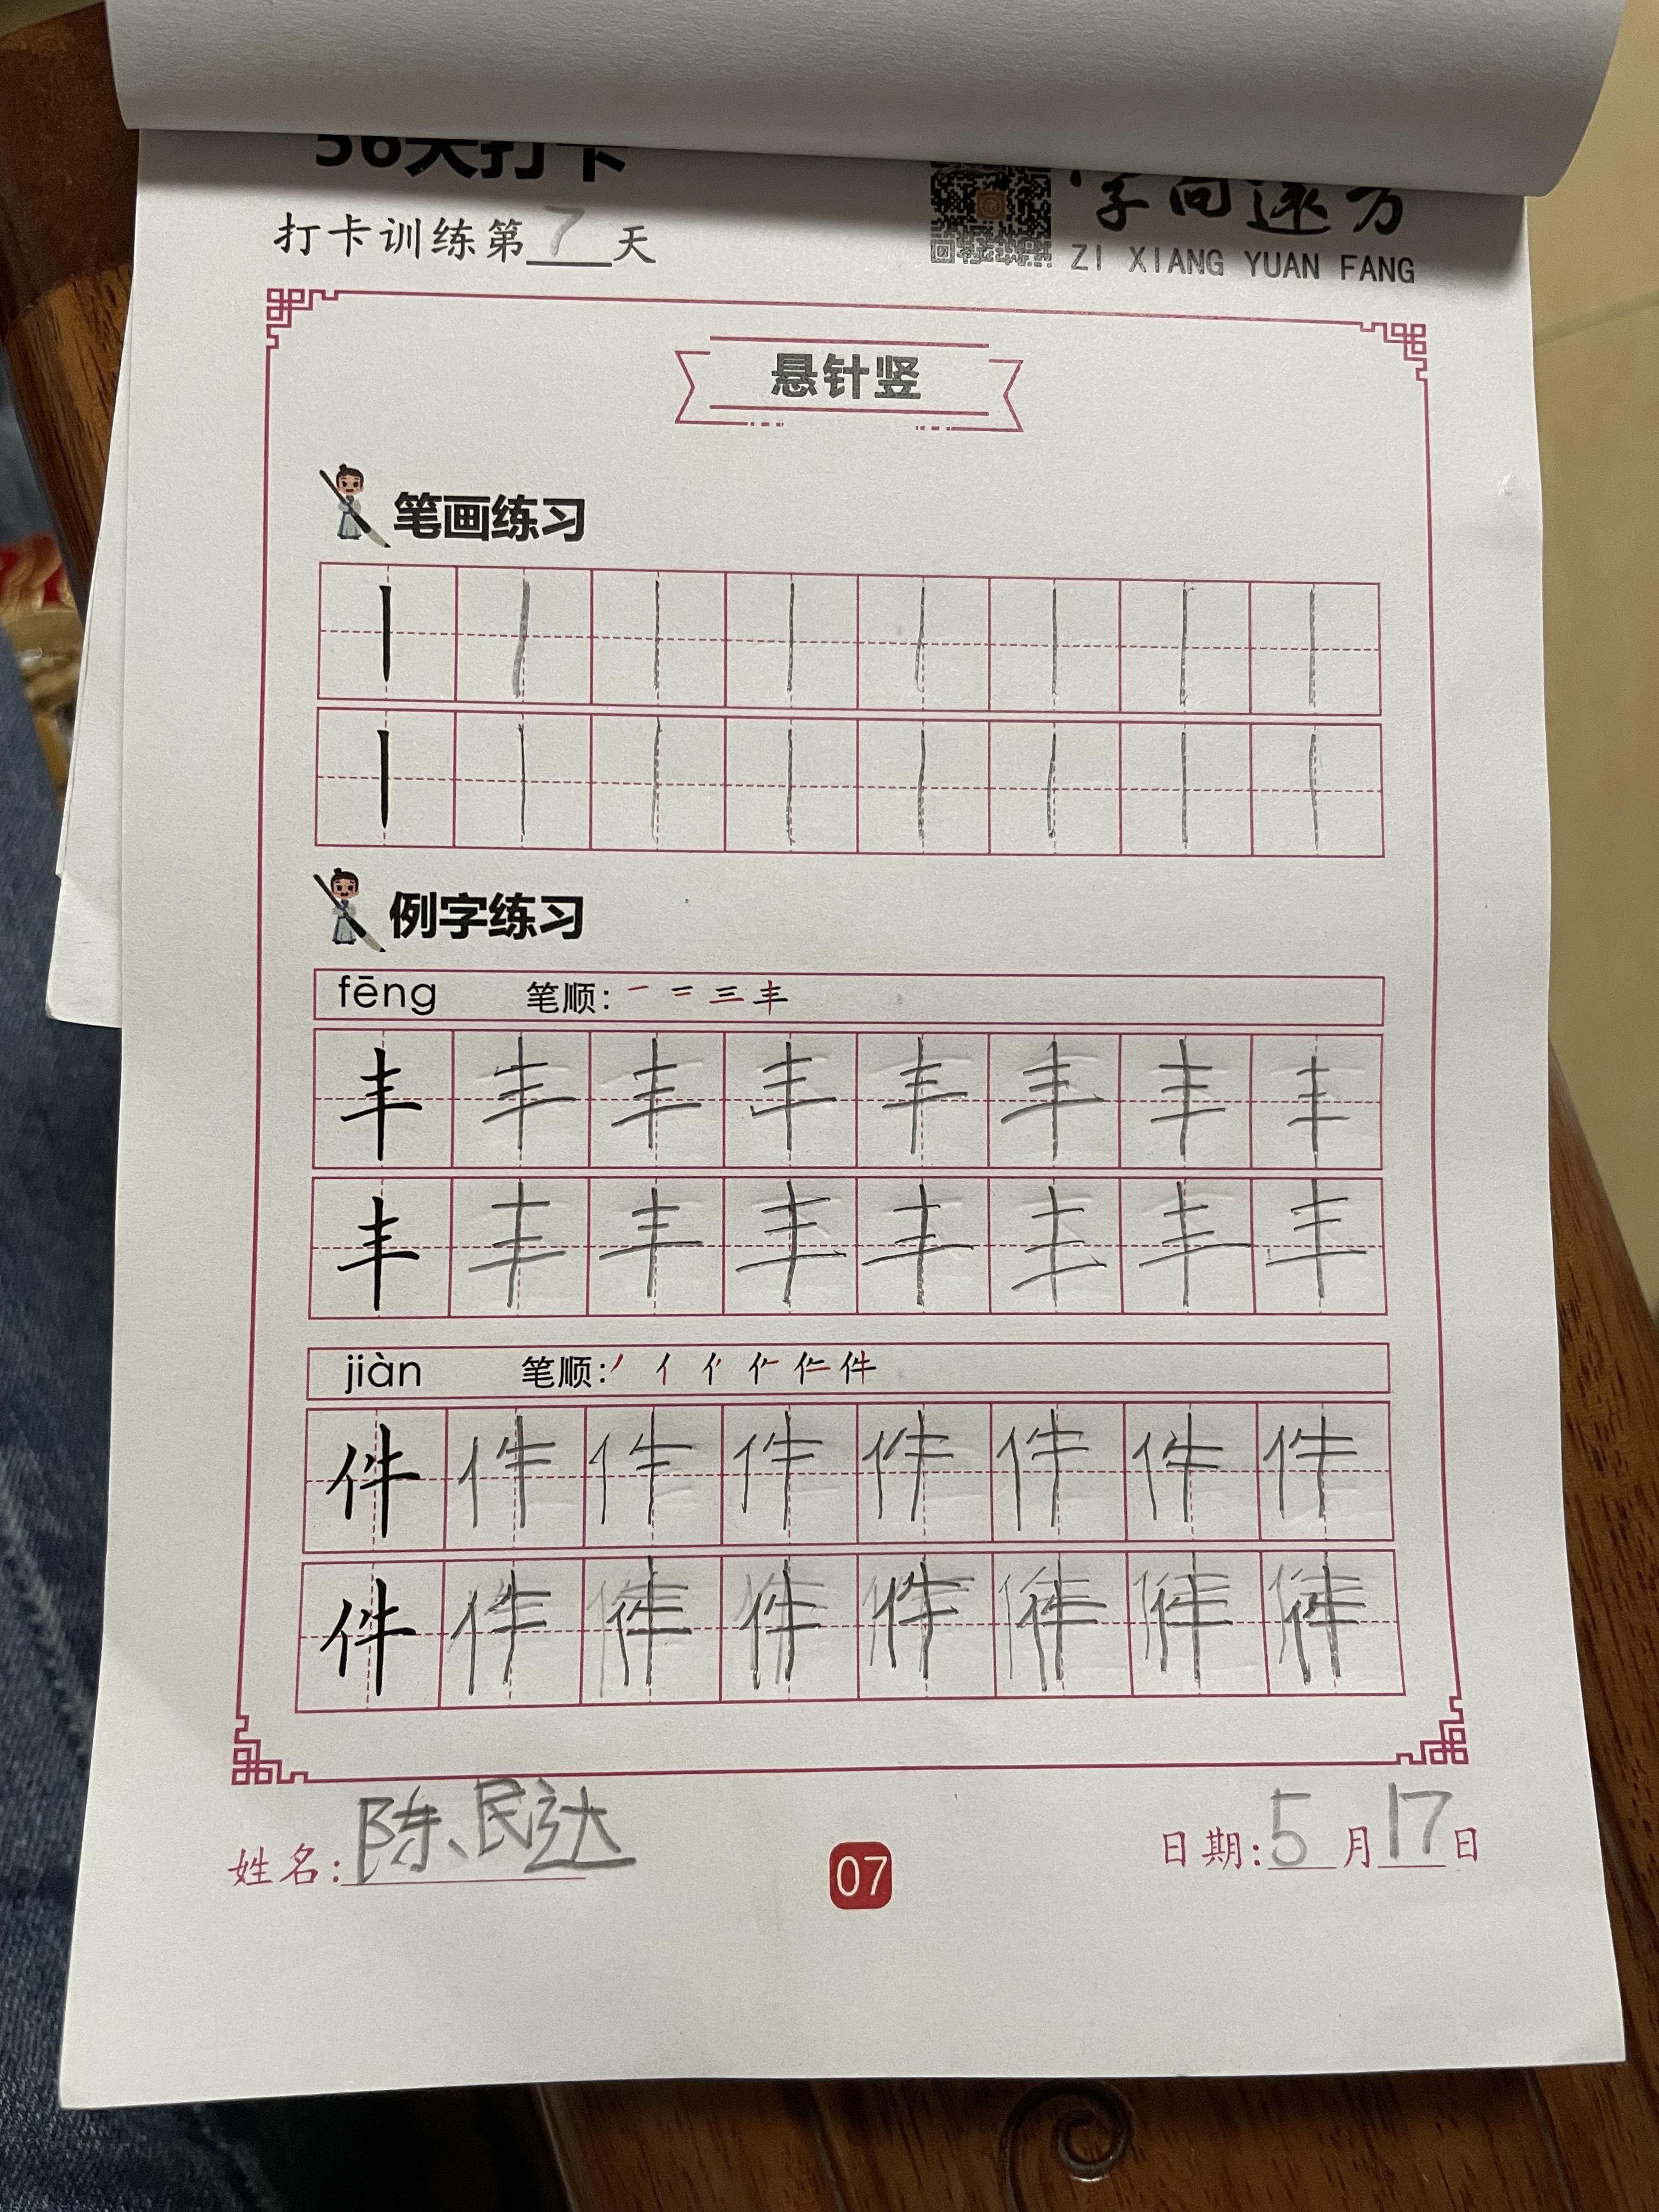 56天打卡
打卡训练第7天
字向远方
ZI XIANG YUAN FANG
悬针竖
笔画练习
例字练习
fēng 笔顺: 一 二 三 丰
丰 丰 丰 丰 丰 丰 丰 丰
丰 丰 丰 丰 丰 丰 丰 丰
jiàn 笔顺: 丿 亻 件
件 件 件 件 件 件 件 件
件 件 件 件 件 件 件 件
姓名: 陈民达
07
日期: 5月17日